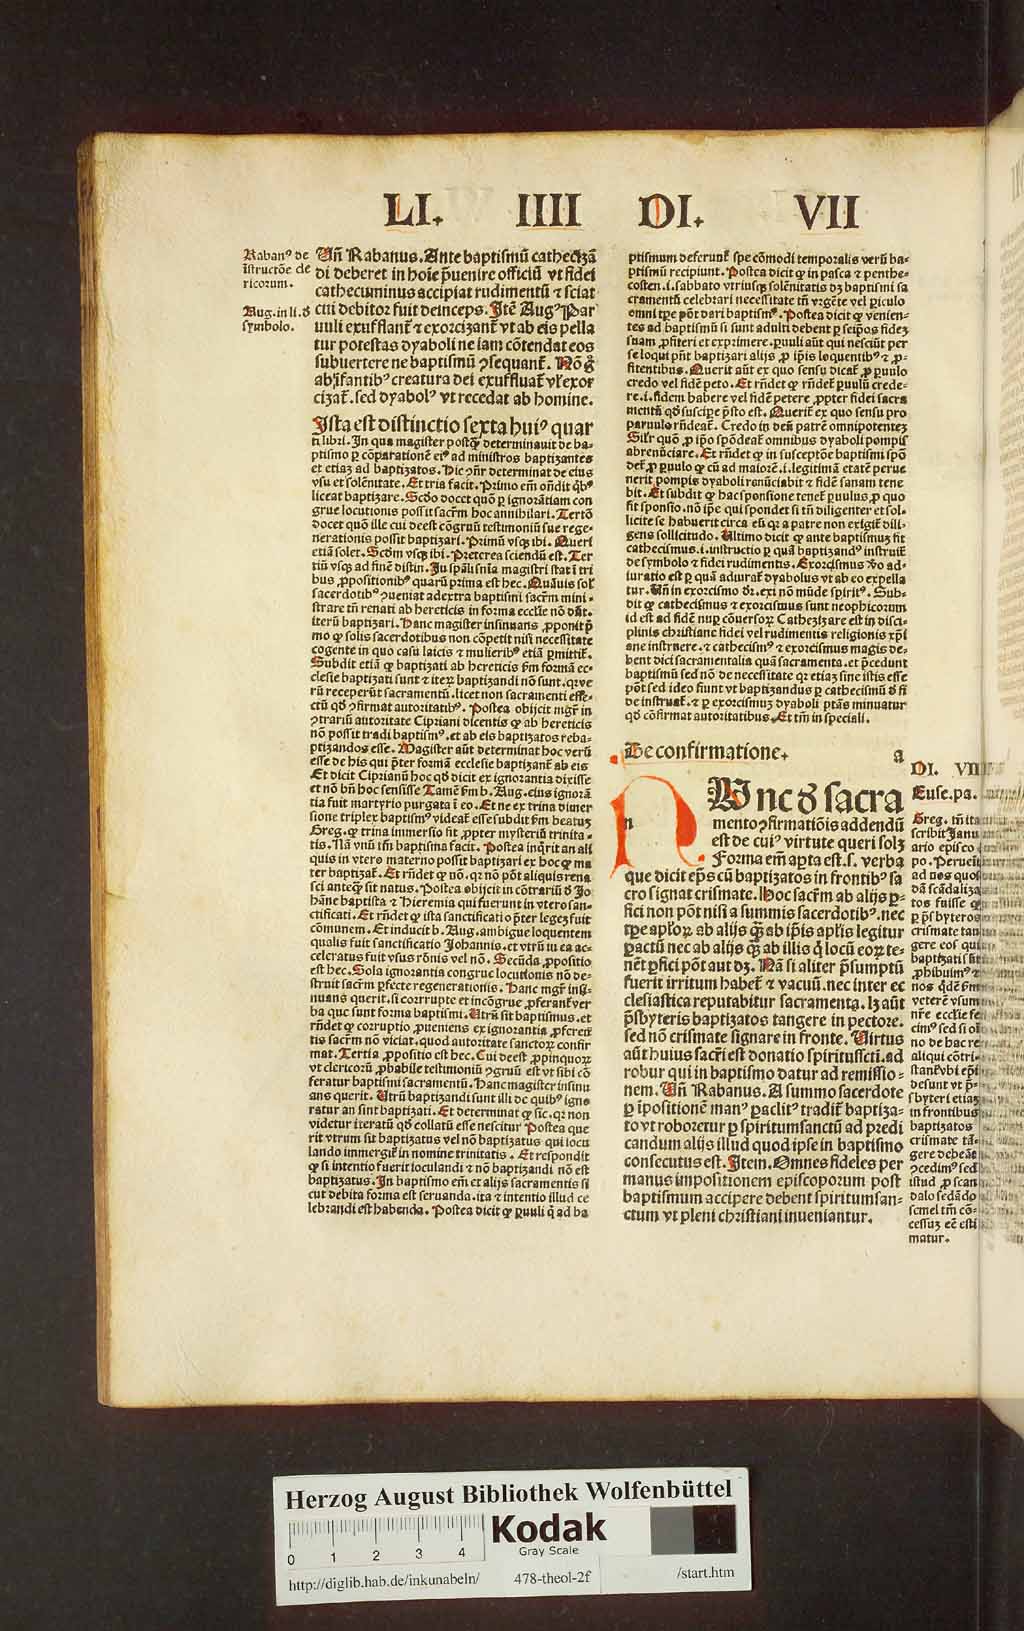 LI. IIII DI. VII
Rabanꝰ de
ĩstructõe cle
ricorum.
Aug. in li. ð
symbolo.
Vñ Rabanus. Ante baptismũ catheczã
di deberet in hoĩe p̃uenire officiũ vt fidei
cathecuminus accipiat rudimentũ ⁊ sciat
cui debitor fuit deinceps. Itẽ Augꝰ Par
uuli exufflant̃ ⁊ exorcizant̃ vt ab eis pella
tur potestas dyaboli ne iam cõtendat eos
subuertere ne baptismũ ꝯsequant̃. Nõ g̃
ab ĩfantibꝰ creatura dei exufflat̃ vl̃ exor
cizat̃. sed dyabolꝰ vt recedat ab homine.
Ista est distinctio sexta huiꝰ quar
ti libri. In qua magister postq̃ determinauit de ba-
ptismo ꝑ cõparationẽ eiꝰ ad ministros baptizantes
et etiaz ad baptizatos. Hic ꝯñr determinat de eius
vsu et solẽnitate. Et tria facit. Primo em̃ oñdit q̃bꝰ
liceat baptizare. Scd̃o docet quõ ꝑ ignorãtiam con
grue locutionis possit sacr̃m hoc annihilari. Tertõ
docet quõ ille cui deest cõgruũ testimoniũ sue rege-
nerationis possit baptizari. Primũ vsq̃ ibi. Queri
etiã solet. Scd̃m vsq̃ ibi. Preterea sciendũ est. Ter
tiũ vsq̃ ad finẽ distin. In sp̃ali sñia magistri stat ĩ tri
bus ꝓpositionibꝰ quarũ prima est hec. Quãuis sol̃
sacerdotibꝰ ꝯueniat ad extra baptismi sacr̃m mini-
strare tñ renati ab hereticis in forma ecclie nõ dñt.
iterũ baptizari. Hanc magister insinuans ꝓponit p̃
mo ꝙ solis sacerdotibus non cõpetit nisi necessitate
cogente in quo casu laicis ⁊ mulieribꝰ etiã ꝑmittit̃.
Subdit etiã ꝙ baptizati ab hereticis ẜm formã ec-
clesie baptizati sunt ⁊ iteꝝ baptizandi nõ sunt. qꝛ ve
rũ receperũt sacramentũ. licet non sacramenti effe-
ctũ qð ꝯfirmat autoritatibꝰ. Postea obijcit mgr̃ in
ꝯtrariũ autoritate Cipriani dicentis ꝙ ab hereticis
nõ possit tradi baptismꝰ. et ab eis baptizatos reba-
ptizandos esse. Magister aũt determinat hoc verũ
esse de his qui p̃ter formã ecclesie baptizant̃ ab eis
Et dicit Ciprianũ hoc qð dicit ex ignorantia dixisse
et nõ bñ hoc sensisse Tamẽ ẜm b. Aug. eius ignorã
tia fuit martyrio purgata ĩ eo. Et ne ex trina dimer
sione triplex baptismꝰ videat̃ esse subdit ẜm beatuz
Greg. ꝙ trina immersio fit ꝓpter mysteriũ trinita-
tis. Nã vnũ tm̃ baptisma facit. Postea inq̃rit an ali
quis in vtero materno possit baptizari ex hoc ꝙ ma
ter baptizat̃. Et rñdet ꝙ nõ. qꝛ nõ põt aliquis rena
sci anteq̃ sit natus. Postea obijcit in cõtrariũ ð Jo
hãne baptista ⁊ Hieremia qui fuerunt in vtero san-
ctificati. Et rñdet ꝙ ista sanctificati o p̃ter legez fuit
cõmunem. Et inducit b. Aug. ambigue loquentem
qualis fuit sanctificatio Johannis. et vtrũ in ea ac-
celeratus fuit vsus rõnis vel nõ. Secũda ꝓpositio
est hec. Sola ignorantia congrue locutionis nõ de-
struit sacr̃m ꝑfecte regenerationis. Hanc mgr̃ insi-
nuans querit. si corrupte et incõgrue ꝓferant̃ ver
ba que sunt forma baptismi. Vtrũ sit baptismus. et
rñdet ꝙ corruptio ꝓueniens ex ignorantia ꝓferen
tis sacr̃m nõ viciat. quod autoritate sanctoꝝ confir
mat. Tertia ꝓpositio est hec. Cui deest ꝓpinquoꝝ
vt clericoꝝ ꝓbabile testimoniũ ꝯgruũ est vt sibi cõ
feratur baptismi sacramentũ. Hanc magister insinu
ans querit. Vtrũ baptizandi sunt illi de quibꝰ igno
ratur an sint baptizati. Et determinat ꝙ sic. qꝛ non
videtur iteratũ qð collatũ esse nescitur Postea que
rit vtrum sit baptizatus vel nõ baptizatus qui iocu
lando immergit̃ in nomine trinitatis. Et respondit
ꝙ si intentio fuerit ioculandi ⁊ nõ baptizandi nõ est
baptizatus. In baptismo em̃ et alijs sacramentis si
cut debita forma est seruanda. ita ⁊ intentio illud ce
lebrandi est habenda. Postea dicit ꝙ ꝑuuli q̃ ad ba
ptismum deferunt̃ spe cõmodi temporalis verũ ba-
ptismũ recipiunt. Postea dicit ꝙ in pasca ⁊ penthe-
costen. i. sabbato vtriusq̃ solẽnitatis dz baptismi sa
cramentũ celebrari necessitate tñ vrgẽte vel ꝑiculo
omni tꝑe põt dari baptismꝰ. Postea dicit ꝙ venien-
tes ad baptismũ si sunt adulti debent ꝑ seipõs fidez
suam ꝓfiteri et exprimere. ꝑuuli aũt qui nesciũt per
se loqui pñt baptizari alijs ꝓ ip̃is loquentibꝰ ⁊ ꝓ-
fitentibus. Querit aũt ex quo sensu dicat̃ ꝓ ꝑuulo
credo vel fidẽ peto. Et rñdet ꝙ rñdet̃ ꝑuulũ crede-
re. i. fidem habere vel fidẽ petere ꝓpter fidei sacra
mentũ qð suscipe p̃sto est. Querit̃ ex quo sensu pro
paruulo rñdeat̃. Credo in deũ patrẽ omnipotentez
Sil̃r quõ ꝓ ip̃o spõdeat̃ omnibus dyaboli pompis
abrenũciare. Et rñdet ꝙ in susceptõe baptismi spõ
det̃ ꝓ ꝑuulo ꝙ cũ ad maiorẽ. i. legitimã etatẽ perue
nerit pompis dyaboli renũciabit ⁊ fidẽ sanam tene
bit. Et subdit ꝙ hac sponsione tenet̃ ꝑuulus ꝓ quo
fit sponsio. nõ ip̃e qui spondet si tñ diligenter et sol-
licite se habuerit circa eũ qꝛ a patre non exigit̃ dili-
gens sollicitudo. Ultimo dicit ꝙ ante baptismuz fit
cathecismus. i. instructio ꝑ quã baptizandꝰ instruit̃
de symbolo ⁊ fidei rudimentis. Exorcismus ꝟo ad-
iuratio est ꝑ quã adiurat̃ dyabolus vt ab eo expella
tur. Vñ in exorcismo dr̃. exi nõ mũde spiritꝰ. Sub-
dit ꝙ cathecismus ⁊ exorcismus sunt neophicorum
id est ad fidẽ nuꝑ cõuersoꝝ Cathezizare est in disci-
plinis christiane fidei vel rudimentis religionis xp̃i
ane instruere. ⁊ cathecismꝰ ⁊ exorcismus magis de-
bent dici sacramentalia quã sacramenta. et p̃cedunt
baptismũ sed nõ de necessitate qꝛ etiaz sine istis esse
põt sed ideo fiunt vt baptizandus ꝑ cathecismũ ð fi
de instruat̃. ⁊ ꝑ exorcismuz dyaboli ptãs minuatur
qð cõfirmat autoritatibus. Et tm̃ in speciali.
De confirmatione. a
n Nunc ð sacra
mento ꝯfirmatiõis addendũ
est de cuiꝰ virtute queri solz
Forma em̃ aꝑta est. s. verba
que dicit ep̃s cũ baptizatos in frontibꝰ sa
cro signat crismate. Hoc sacr̃m ab alijs ꝑ-
fici non põt nisi a summis sacerdotibꝰ. nec
tꝑe aplõꝝ ab alijs q̃ꝫ ab ip̃is aplis legitur
ꝑactũ nec ab alijs q̃ꝫ ab illis q̃ locũ eoꝝ te-
nẽt ꝑfici põt aut dz. Nã si aliter p̃sumptũ
fuerit irritum habet̃ ⁊ vacuũ. nec inter ec
clesiastica reputabitur sacramenta. lz aũt
p̃sbyteris baptizatos tangere in pectore.
sed nõ crismate signare in fronte. Virtus
aũt huius sacr̃i est donatio spiritussc̃ti. ad
robur qui in baptismo datur ad remissio-
nem. Vñ Rabanus. A summo sacerdote
ꝑ ĩpositionẽ manꝰ ꝑaclitꝰ tradit̃ baptiza-
to vt roboretur ꝑ spiritumsanctũ ad predi
candum alijs illud quod ipse in baptismo
consecutus est. Item. Omnes fideles per
manus impositionem episcoporum post
baptismum accipere debent spiritumsan-
ctum vt pleni christiani inueniantur.
DI. VII
Euse. pa.
Greg. tñ ita
scribit Janu
ario episco
po. Peruenit
ad nos quos
dã scãdaliza
tos fuisse ꝙ
ꝑ p̃sbyteros
crismate tan
gere eos qui
baptizati sũt
ꝓhibuimꝰ ⁊
nos q̃dẽ ẜm
veterẽ vsum
nr̃e ecclie fe
cimꝰ sed si oĩ
no de hac re
aliqui cõtri-
stant̃ vbi ep̃i
desunt vt p̃-
sbyteri etiaz
in frontibus
baptizatos
crismate tã-
gere debeãt
ꝯcedimꝰ sed
istud ꝓ scan
dalo sedãdo
semel tm̃ cõ-
cessuz eẽ esti
matur.
Herzog August Bibliothek Wolfenbüttel
Kodak
Gray Scale
0 1 2 3 4
http://diglib.hab.de/inkunabeln/ 478-theol-2f /start.htm